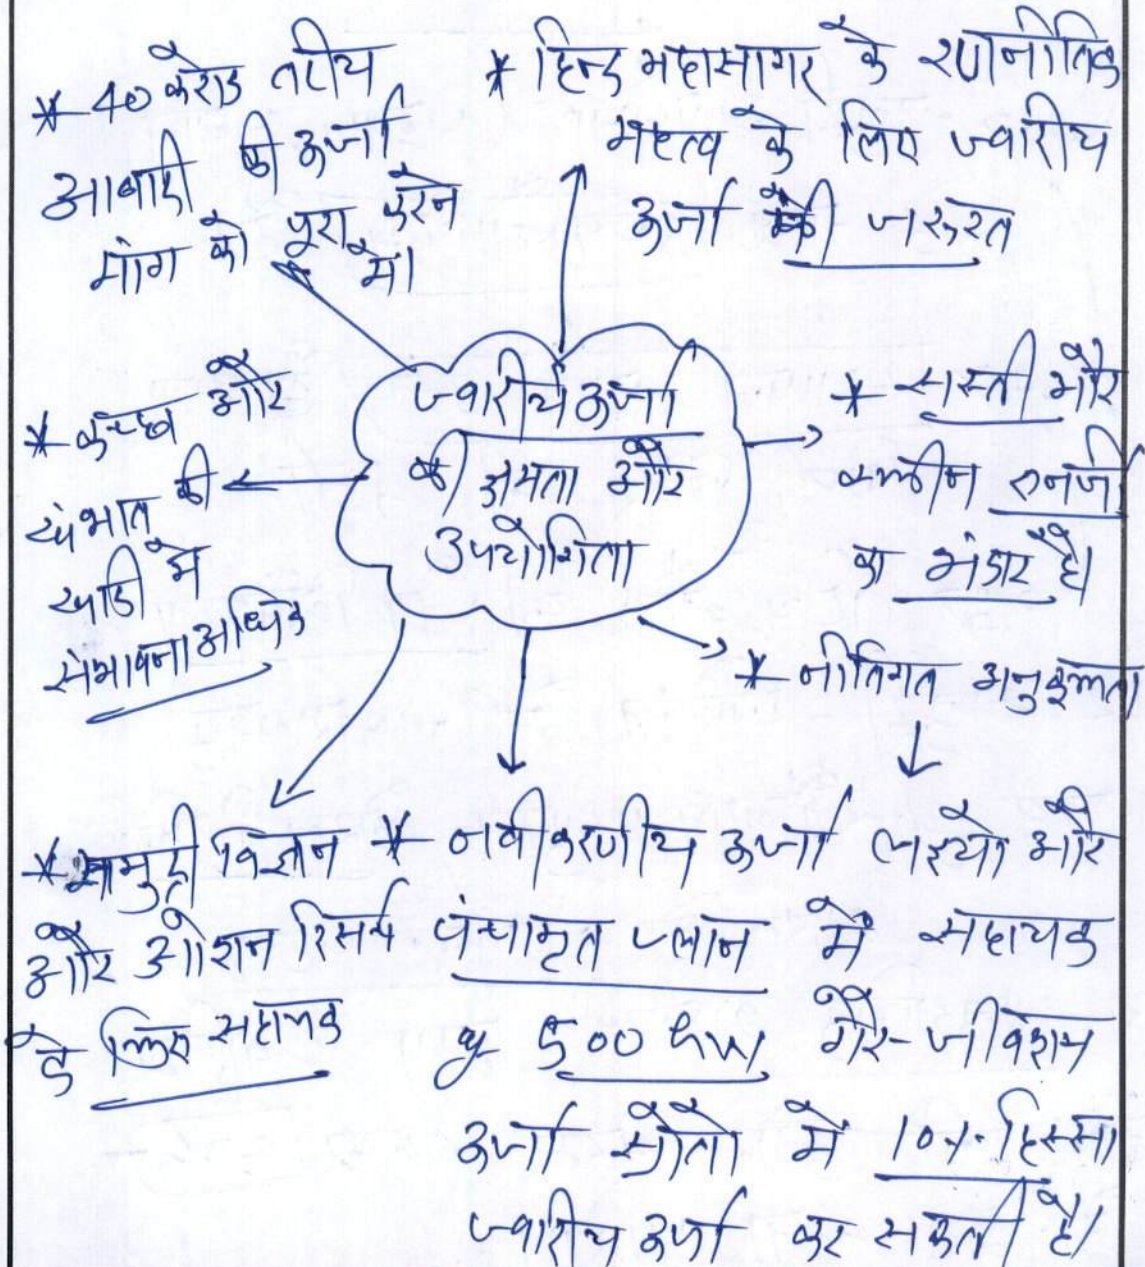 * 40 करोड तटीय
आबादी की ऊर्जा
मांग को पूरा करने
में।
* हिन्द महासागर के रणनीतिक
महत्व के लिए ज्वारीय
ऊर्जा की जरूरत
ज्वारीय ऊर्जा
की क्षमता और
उपयोगिता
* सस्ती और
क्लीन एनर्जी
का भंडार है।
* कच्छ और
खंभात की
खाडी में
संभावना अधिक
* नीतिगत अनुकूलता
* समुद्री विज्ञान
और ओशन रिसर्च
के लिए सहायक
* नवीकरणीय ऊर्जा लक्ष्यों और
पंचामृत प्लान में सहायक
500 GW गैर-जीवाश्म
ऊर्जा स्रोतों में 10% हिस्सा
ज्वारीय ऊर्जा कर सकती है।